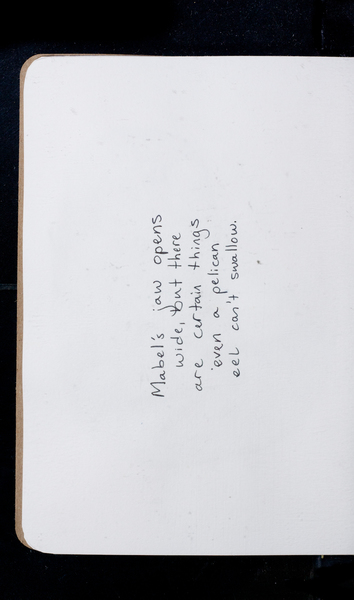 Mabel's jaw opens
wide, but there
are certain things
even a pelican
eel can't swallow.